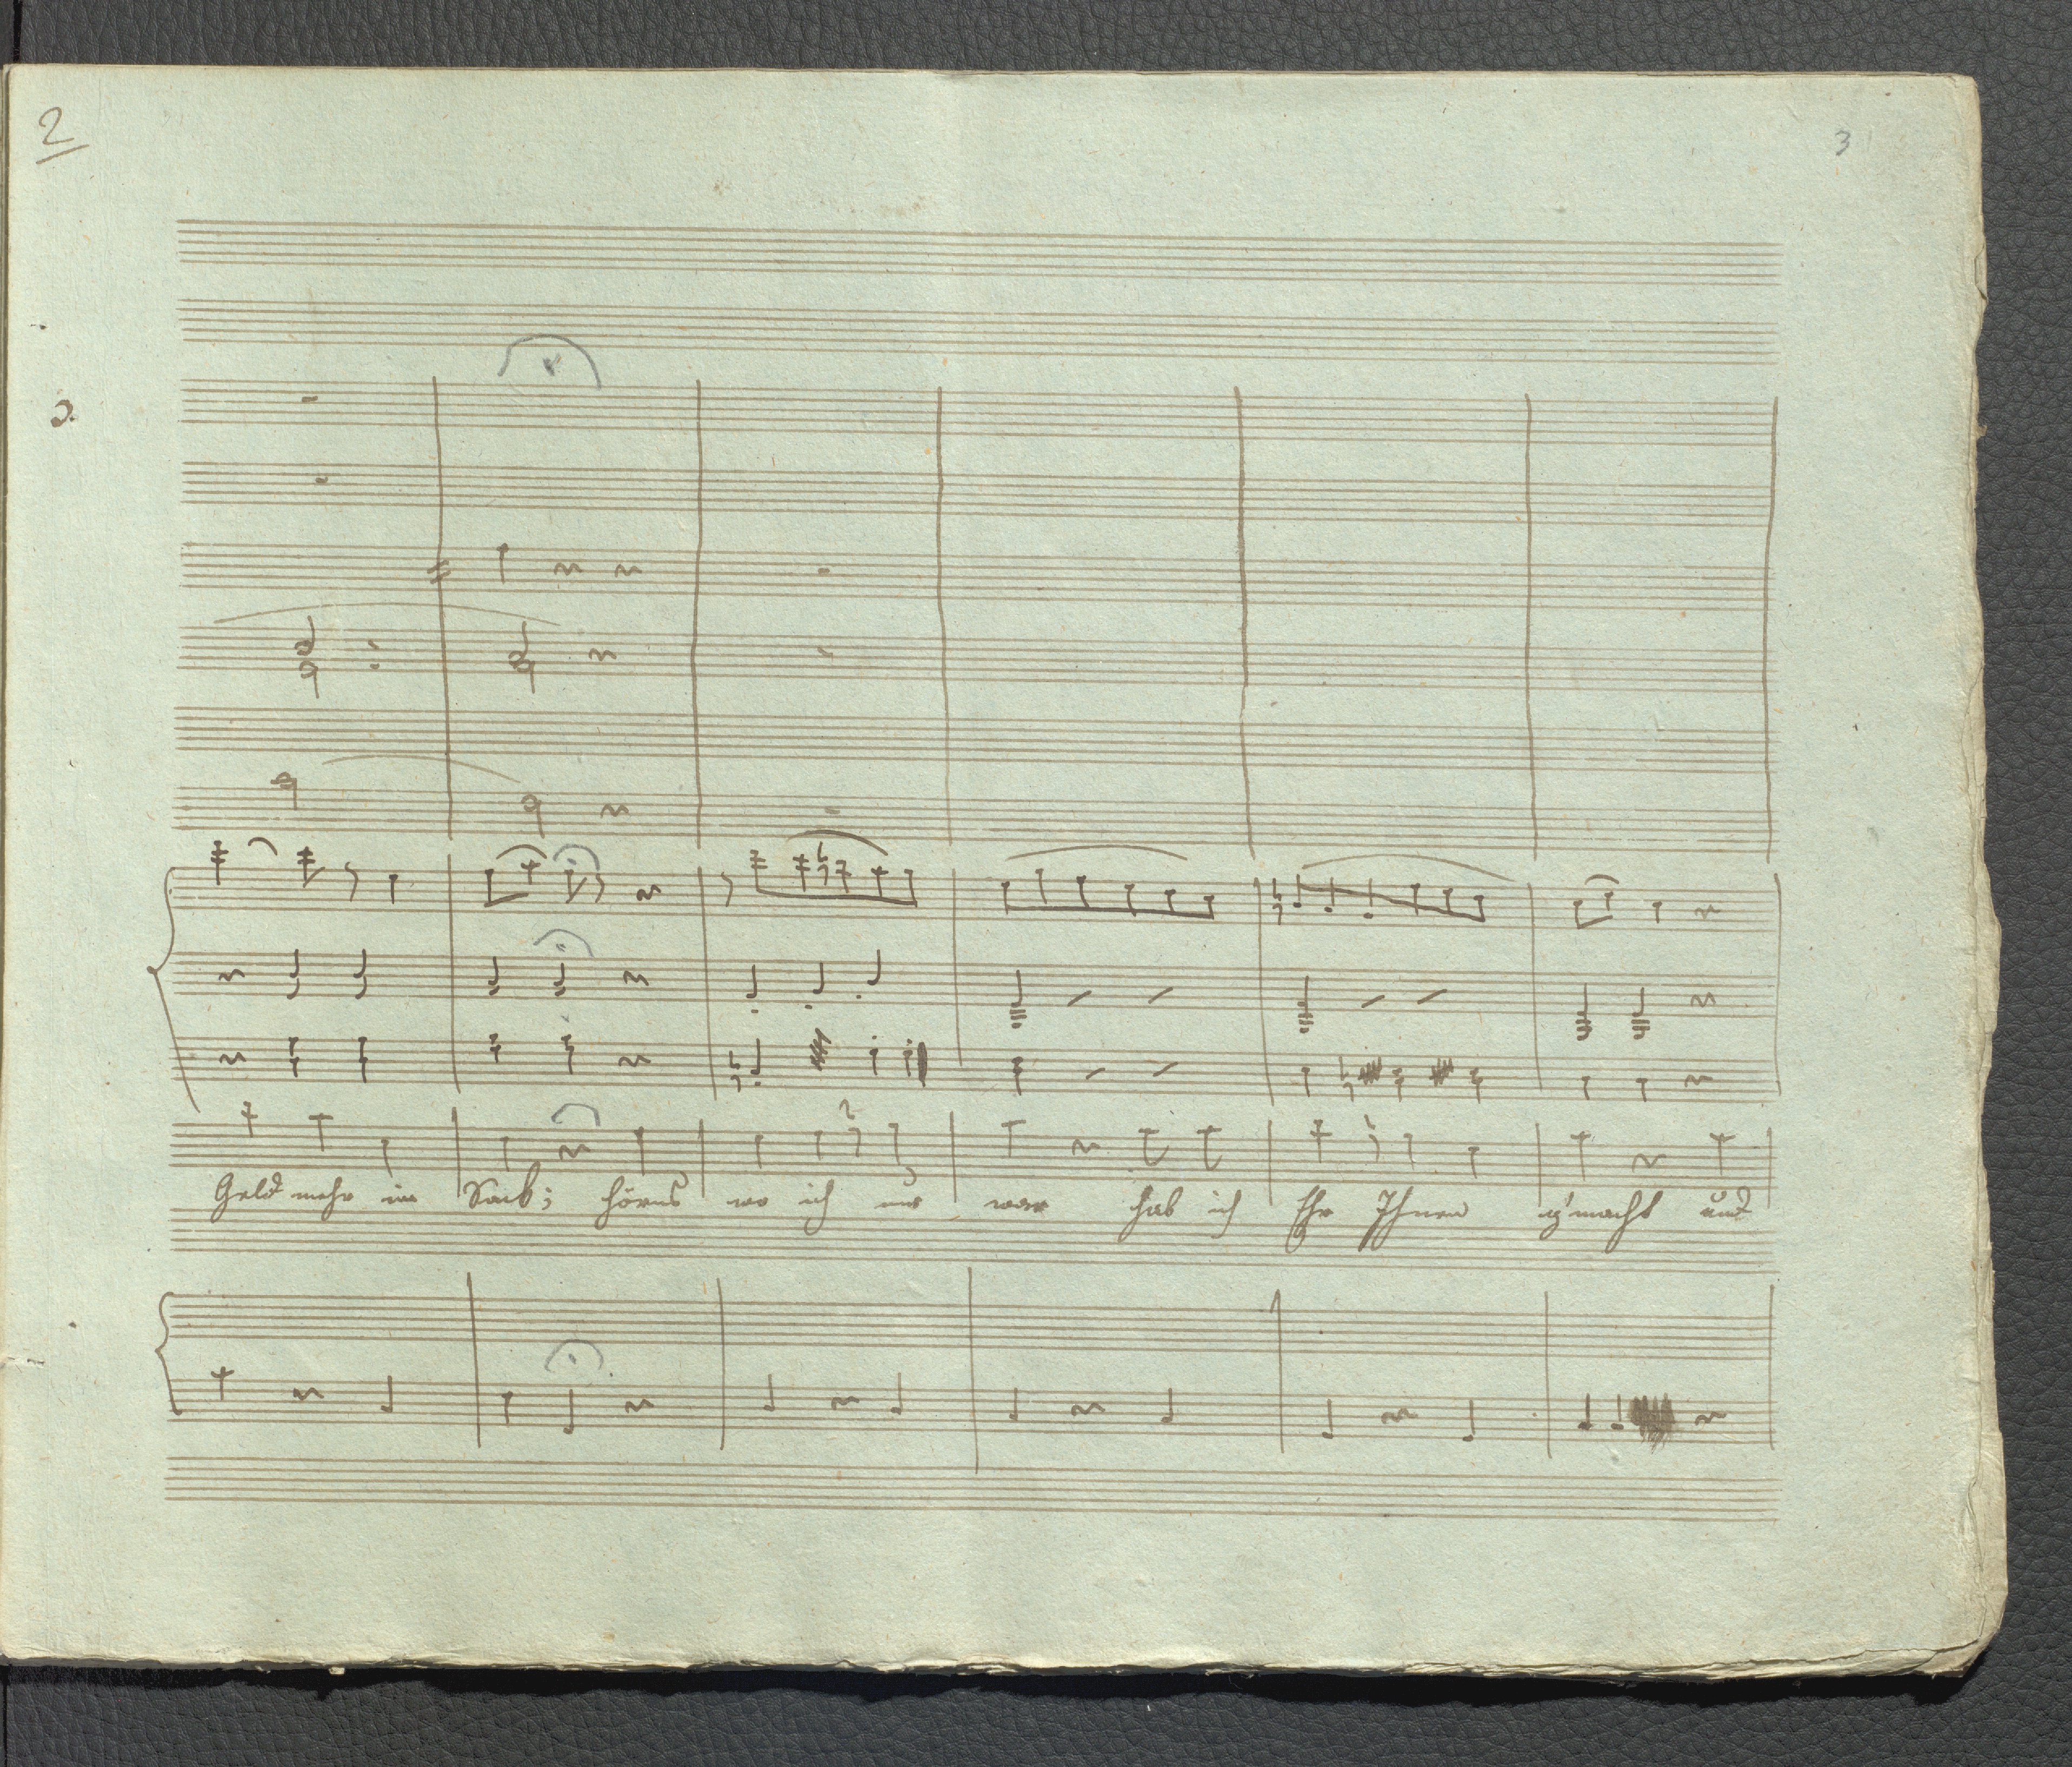 2
3
Geld mehr im Sack; hörns wo ich nur war hab ich Ehr Ihnen g'macht und